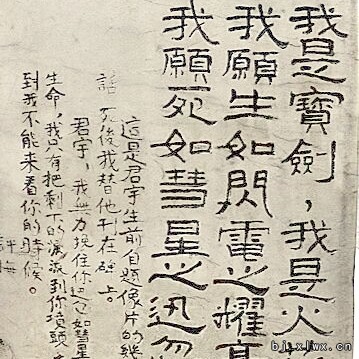 我是寶劍，我是火
我願生如閃電之耀亮
我願死如彗星之迅忽
這是君宇生前自題像片的幾
話 死後我替他刊在碑上。
君宇，我無力挽住你迅忽如彗星
生命，我只有把剩下的淚流到你墳頭
到我不能來看你的時候。
評梅
bjxlwx.cn